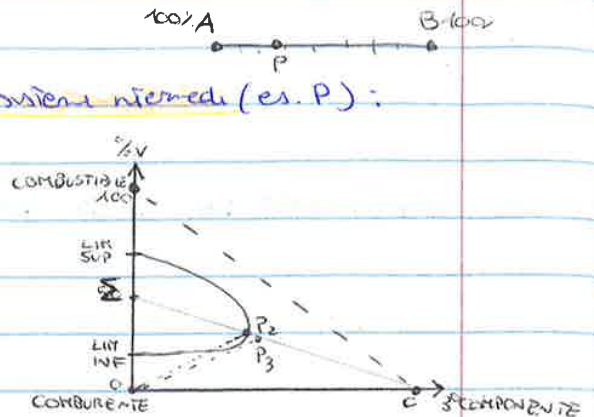 100% A
B 100%
P
(es. P):
% V
COMBUSTIBILE
100
LIM
SUP
LIM
INF
P2
P3
0
COMBURENTE
C
3° COMPONENTE